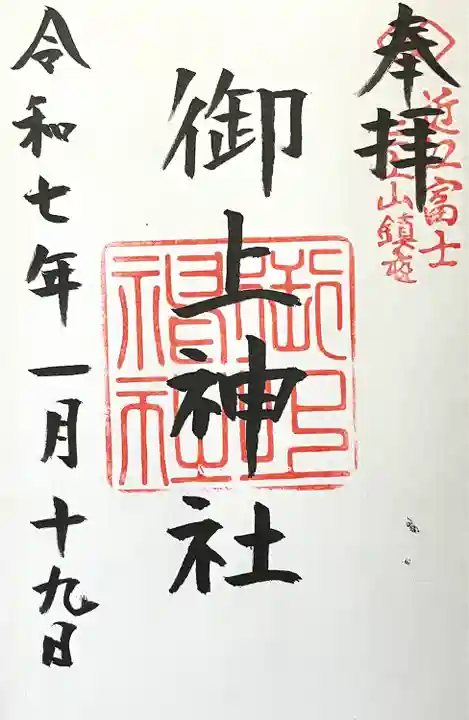 奉拝
近江富士
三上山鎮座
御上神社
令和七年一月十九日